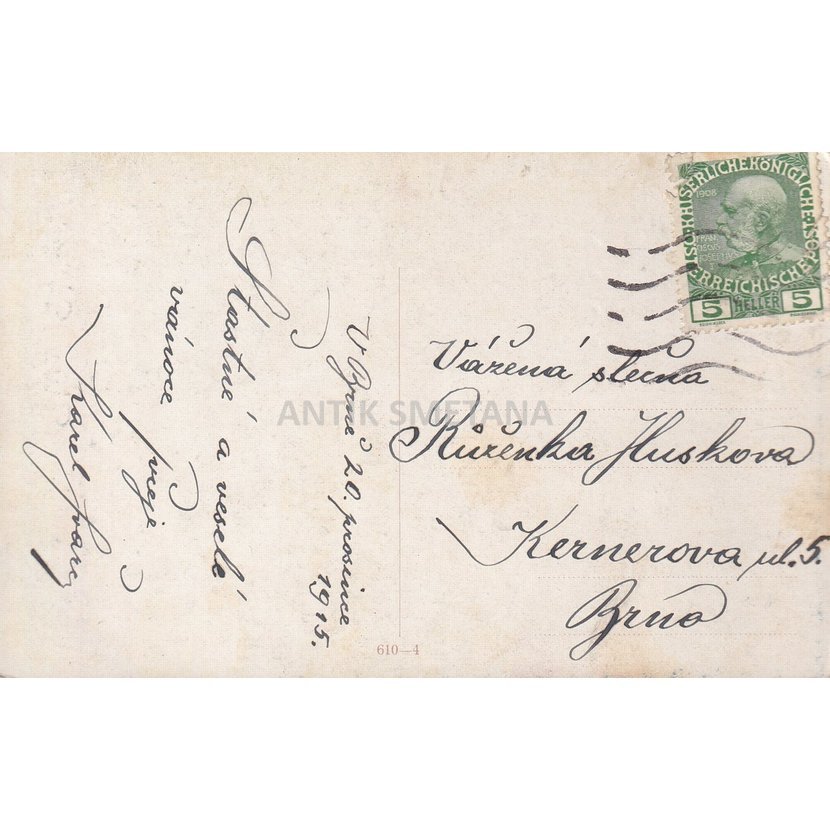 V Brně 20. prosince
1915.
Šťastné a veselé
vánoce přeje
Karel Švarc
Vážená slečna
Růženka Huskova
Kernerova ul. 5.
Brno
KAISERLICHE KÖNIGLICHE
ÖSTERREICHISCHE POST
1908
FRAN
CISCVS
JOSEPHVS
5 HELLER 5
610—4
ANTIK SMETANA